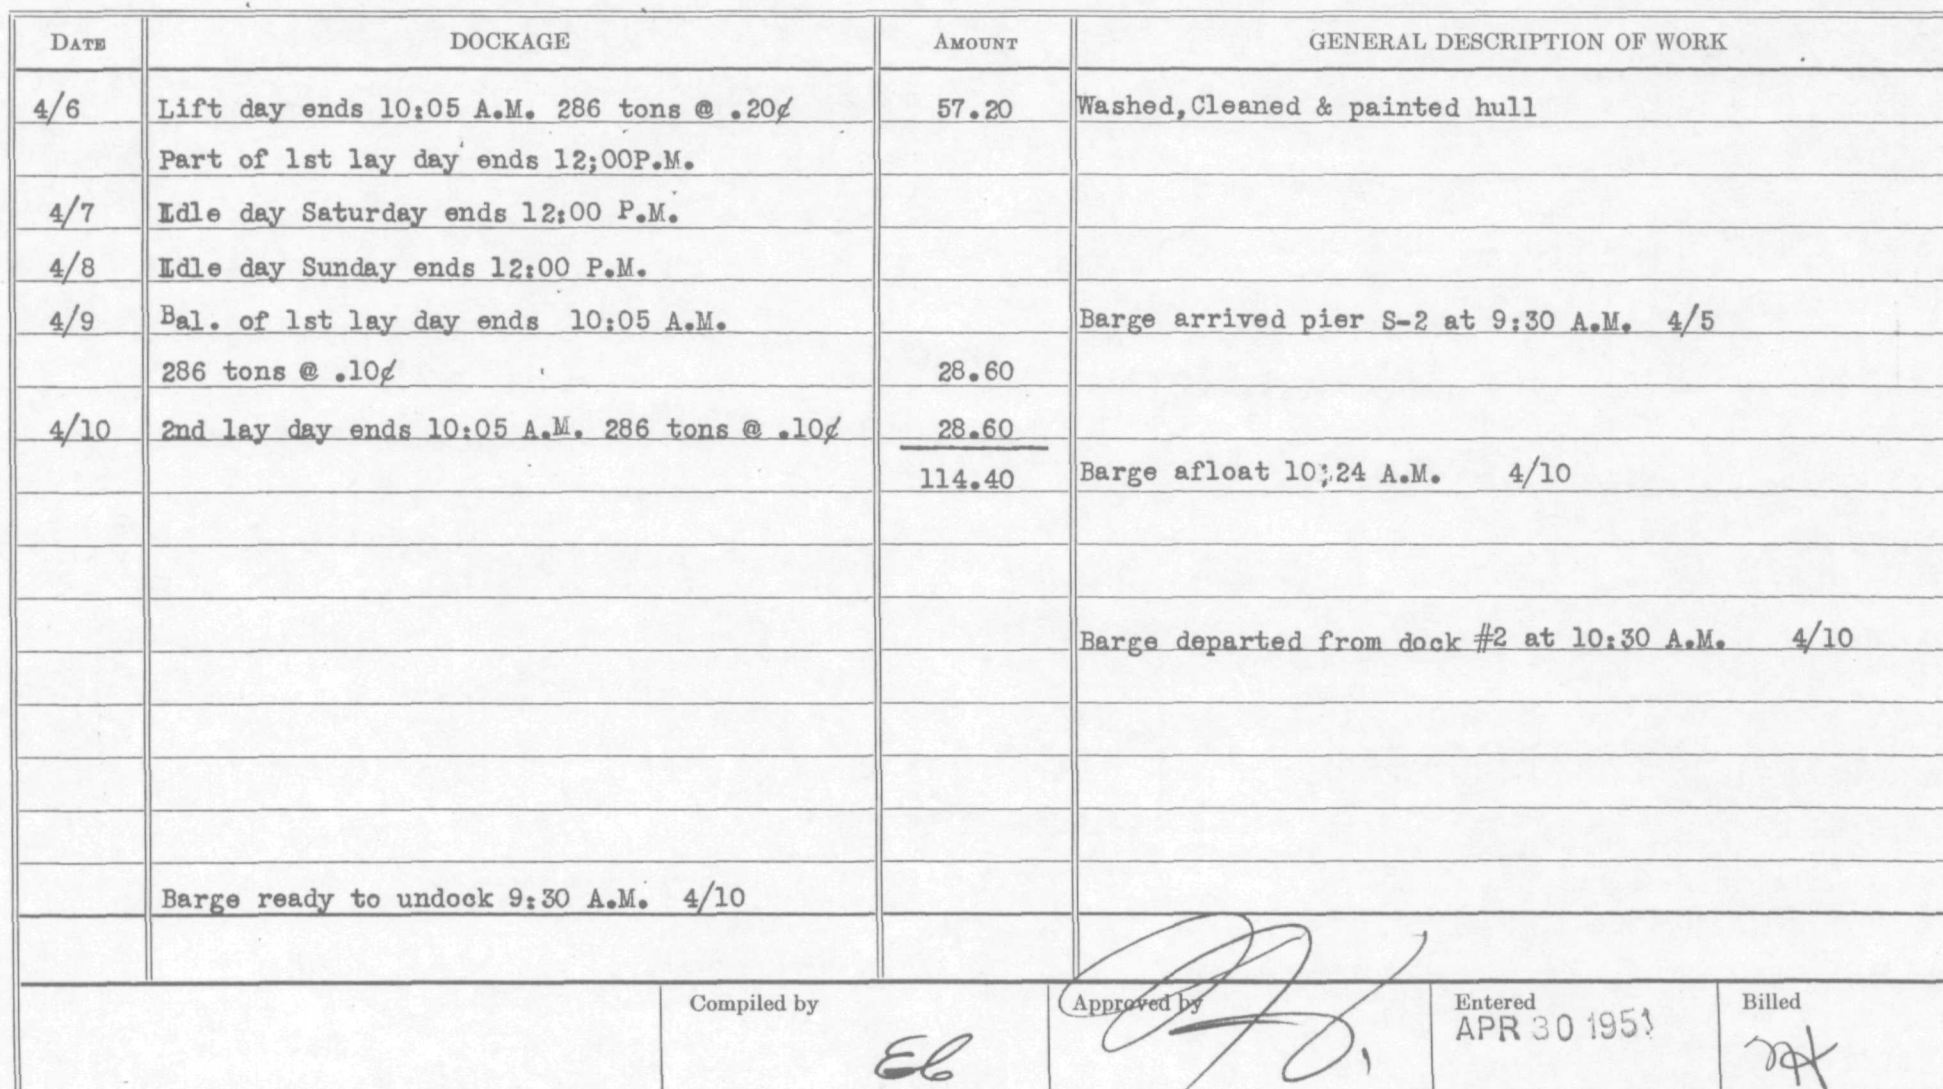 DATE DOCKAGE AMOUNT GENERAL DESCRIPTION OF WORK
4/6 Lift day ends 10:05 A.M. 286 tons @ .20¢ 57.20 Washed,Cleaned & painted hull
Part of 1st lay day ends 12;00P.M.
4/7 Idle day Saturday ends 12:00 P.M.
4/8 Idle day Sunday ends 12:00 P.M.
4/9 Bal. of 1st lay day ends 10:05 A.M. Barge arrived pier S-2 at 9:30 A.M. 4/5
286 tons @ .10¢ 28.60
4/10 2nd lay day ends 10:05 A.M. 286 tons @ .10¢ 28.60
114.40 Barge afloat 10:24 A.M. 4/10
Barge departed from dock #2 at 10:30 A.M. 4/10
Barge ready to undock 9:30 A.M. 4/10
Compiled by Approved by Entered Billed
APR 30 1951